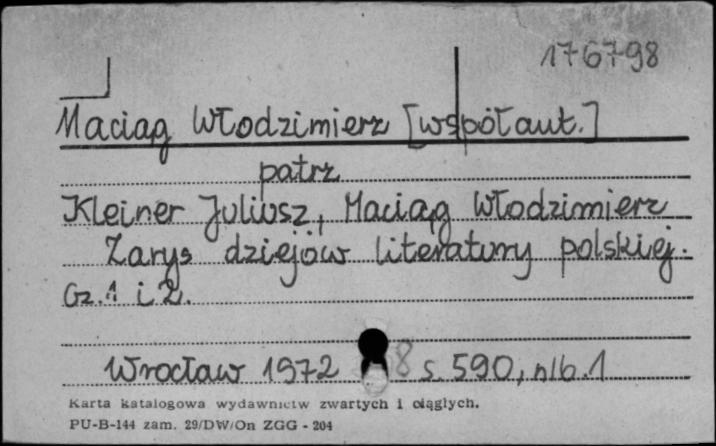 176798
Maciąg Włodzimierz [współaut.]
patrz
Kleiner Juliusz, Maciąg Włodzimierz
Zarys dziejów literatury polskiej.
Cz. 1 i 2.
Wrocław 1972 8 s. 590, nlb. 1
Karta katalogowa wydawnictw zwartych i ciągłych.
PU-B-144 zam. 29/DW/On ZGG - 204